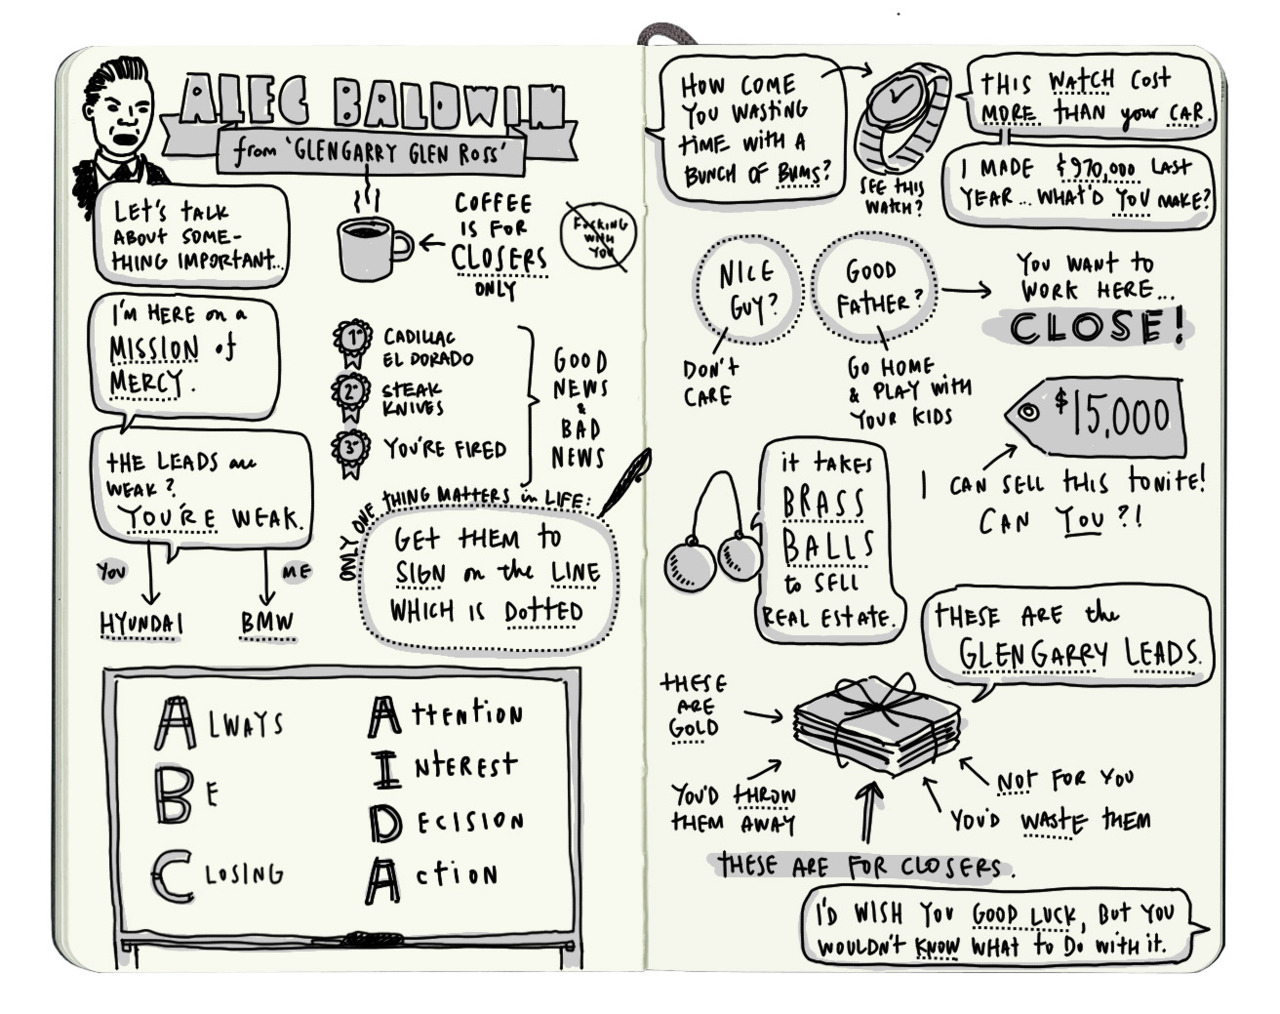 ALEC BALDWIN
from 'GLENGARRY GLEN ROSS'
LET'S TALK
ABOUT SOME-
THING IMPORTANT...
I'M HERE on a
MISSION of
MERCY.
THE LEADS are
WEAK?
YOU'RE WEAK.
YOU
ME
HYUNDAI
BMW
COFFEE
IS FOR
CLOSERS
ONLY
F*CKING
WITH
YOU
1st
CADILLAC
EL DORADO
2nd
STEAK
KNIVES
3rd
YOU'RE FIRED
GOOD
NEWS
&
BAD
NEWS
ONLY ONE THING MATTERS in LIFE:
GET THEM TO
SIGN on the LINE
WHICH IS DOTTED
ALWAYS
BE
CLOSING
ATTENTION
INTEREST
DECISION
ACTION
HOW COME
YOU WASTING
TIME WITH A
BUNCH OF BUMS?
SEE THIS
WATCH?
THIS WATCH COST
MORE THAN your CAR.
I MADE $970,000 LAST
YEAR... WHAT'D YOU MAKE?
NICE
GUY?
DON'T
CARE
GOOD
FATHER?
GO HOME
& PLAY WITH
YOUR KIDS
YOU WANT TO
WORK HERE...
CLOSE!
$15,000
I CAN SELL THIS TONITE!
CAN YOU?!
it TAKES
BRASS
BALLS
to SELL
REAL ESTATE.
THESE ARE the
GLENGARRY LEADS.
THESE
ARE
GOLD
YOU'D THROW
THEM AWAY
NOT FOR YOU
YOU'D WASTE THEM
THESE ARE FOR CLOSERS.
I'D WISH YOU GOOD LUCK, BUT YOU
WOULDN'T KNOW WHAT to DO with it.